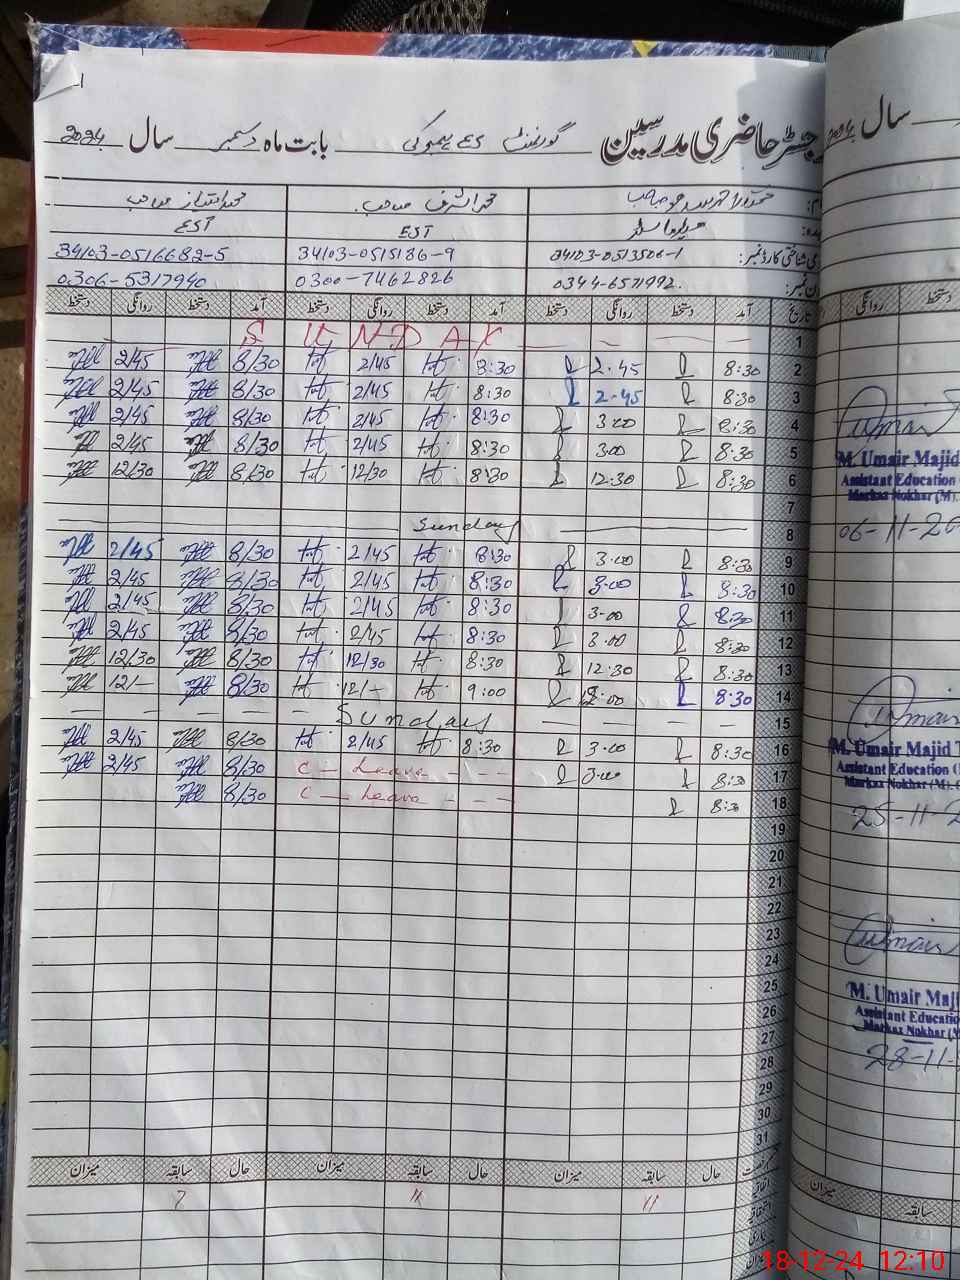 رجسٹر حاضری مدرسین گورنمنٹ بابت ماہ دسمبر سال 2024
سال
محمد اشرف صاحب محمد امتیاز صاحب
EST EST
34103-0515186-9 34103-0516682-5
0344-6571992 0300-7462826 0306-5317940
تاریخ آمد دستخط روانگی دستخط آمد دستخط روانگی دستخط آمد دستخط روانگی دستخط
روانگی دستخط
1 S U N D A Y
2 8:30 2.45 8:30 2/45 8/30 2/45
3 8:30 2-45 8:30 2/45 8/30 2/45
4 8:30 3:00 8:30 2/45 8/30 2/45
5 8:30 3:00 8:30 2/45 8/30 2/45
6 8:30 12:30 8:30 12/30 8/30 12/30
7
8 Sunday
9 8:30 3:00 8:30 2/45 8/30 2/45
10 8:30 3:00 8:30 2/45 8/30 2/45
11 8:30 3:00 8:30 2/45 8/30 2/45
12 8:30 3:00 8:30 2/45 8/30 2/45
13 8:30 12:30 8:30 12/30 8/30 12/30
14 8:30 12:00 9:00 12/- 8/30 12/-
15 Sunday
16 8:30 3:00 8:30 2/45 8/30 2/45
17 8:30 3:00 C - Leave 8/30 2/45
18 8:30 C - Leave 8/30
19
20
21
22
23
24
25
26
27
28
29
30
31
حال سابقہ میزان حال سابقہ میزان حال سابقہ میزان
11 11 7
M. Umair Majid
Assistant Education
Markaz Nokhar (M).
06-11-20
M. Umair Majid
Assistant Education
Markaz Nokhar (M).
25-11-2
M. Umair Maji
Assistant Educatio
Markaz Nokhar (M
28-11-
میزان
سابقہ
18-12-24 12:10